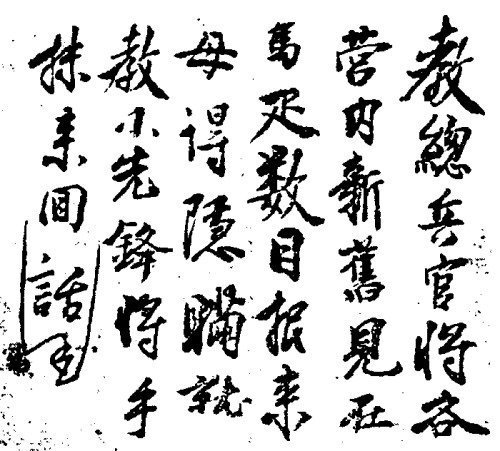 教總兵官將各
营内新舊見在
馬疋数目报来
毋得隱瞞就
教小先鋒将手
抹来囬話